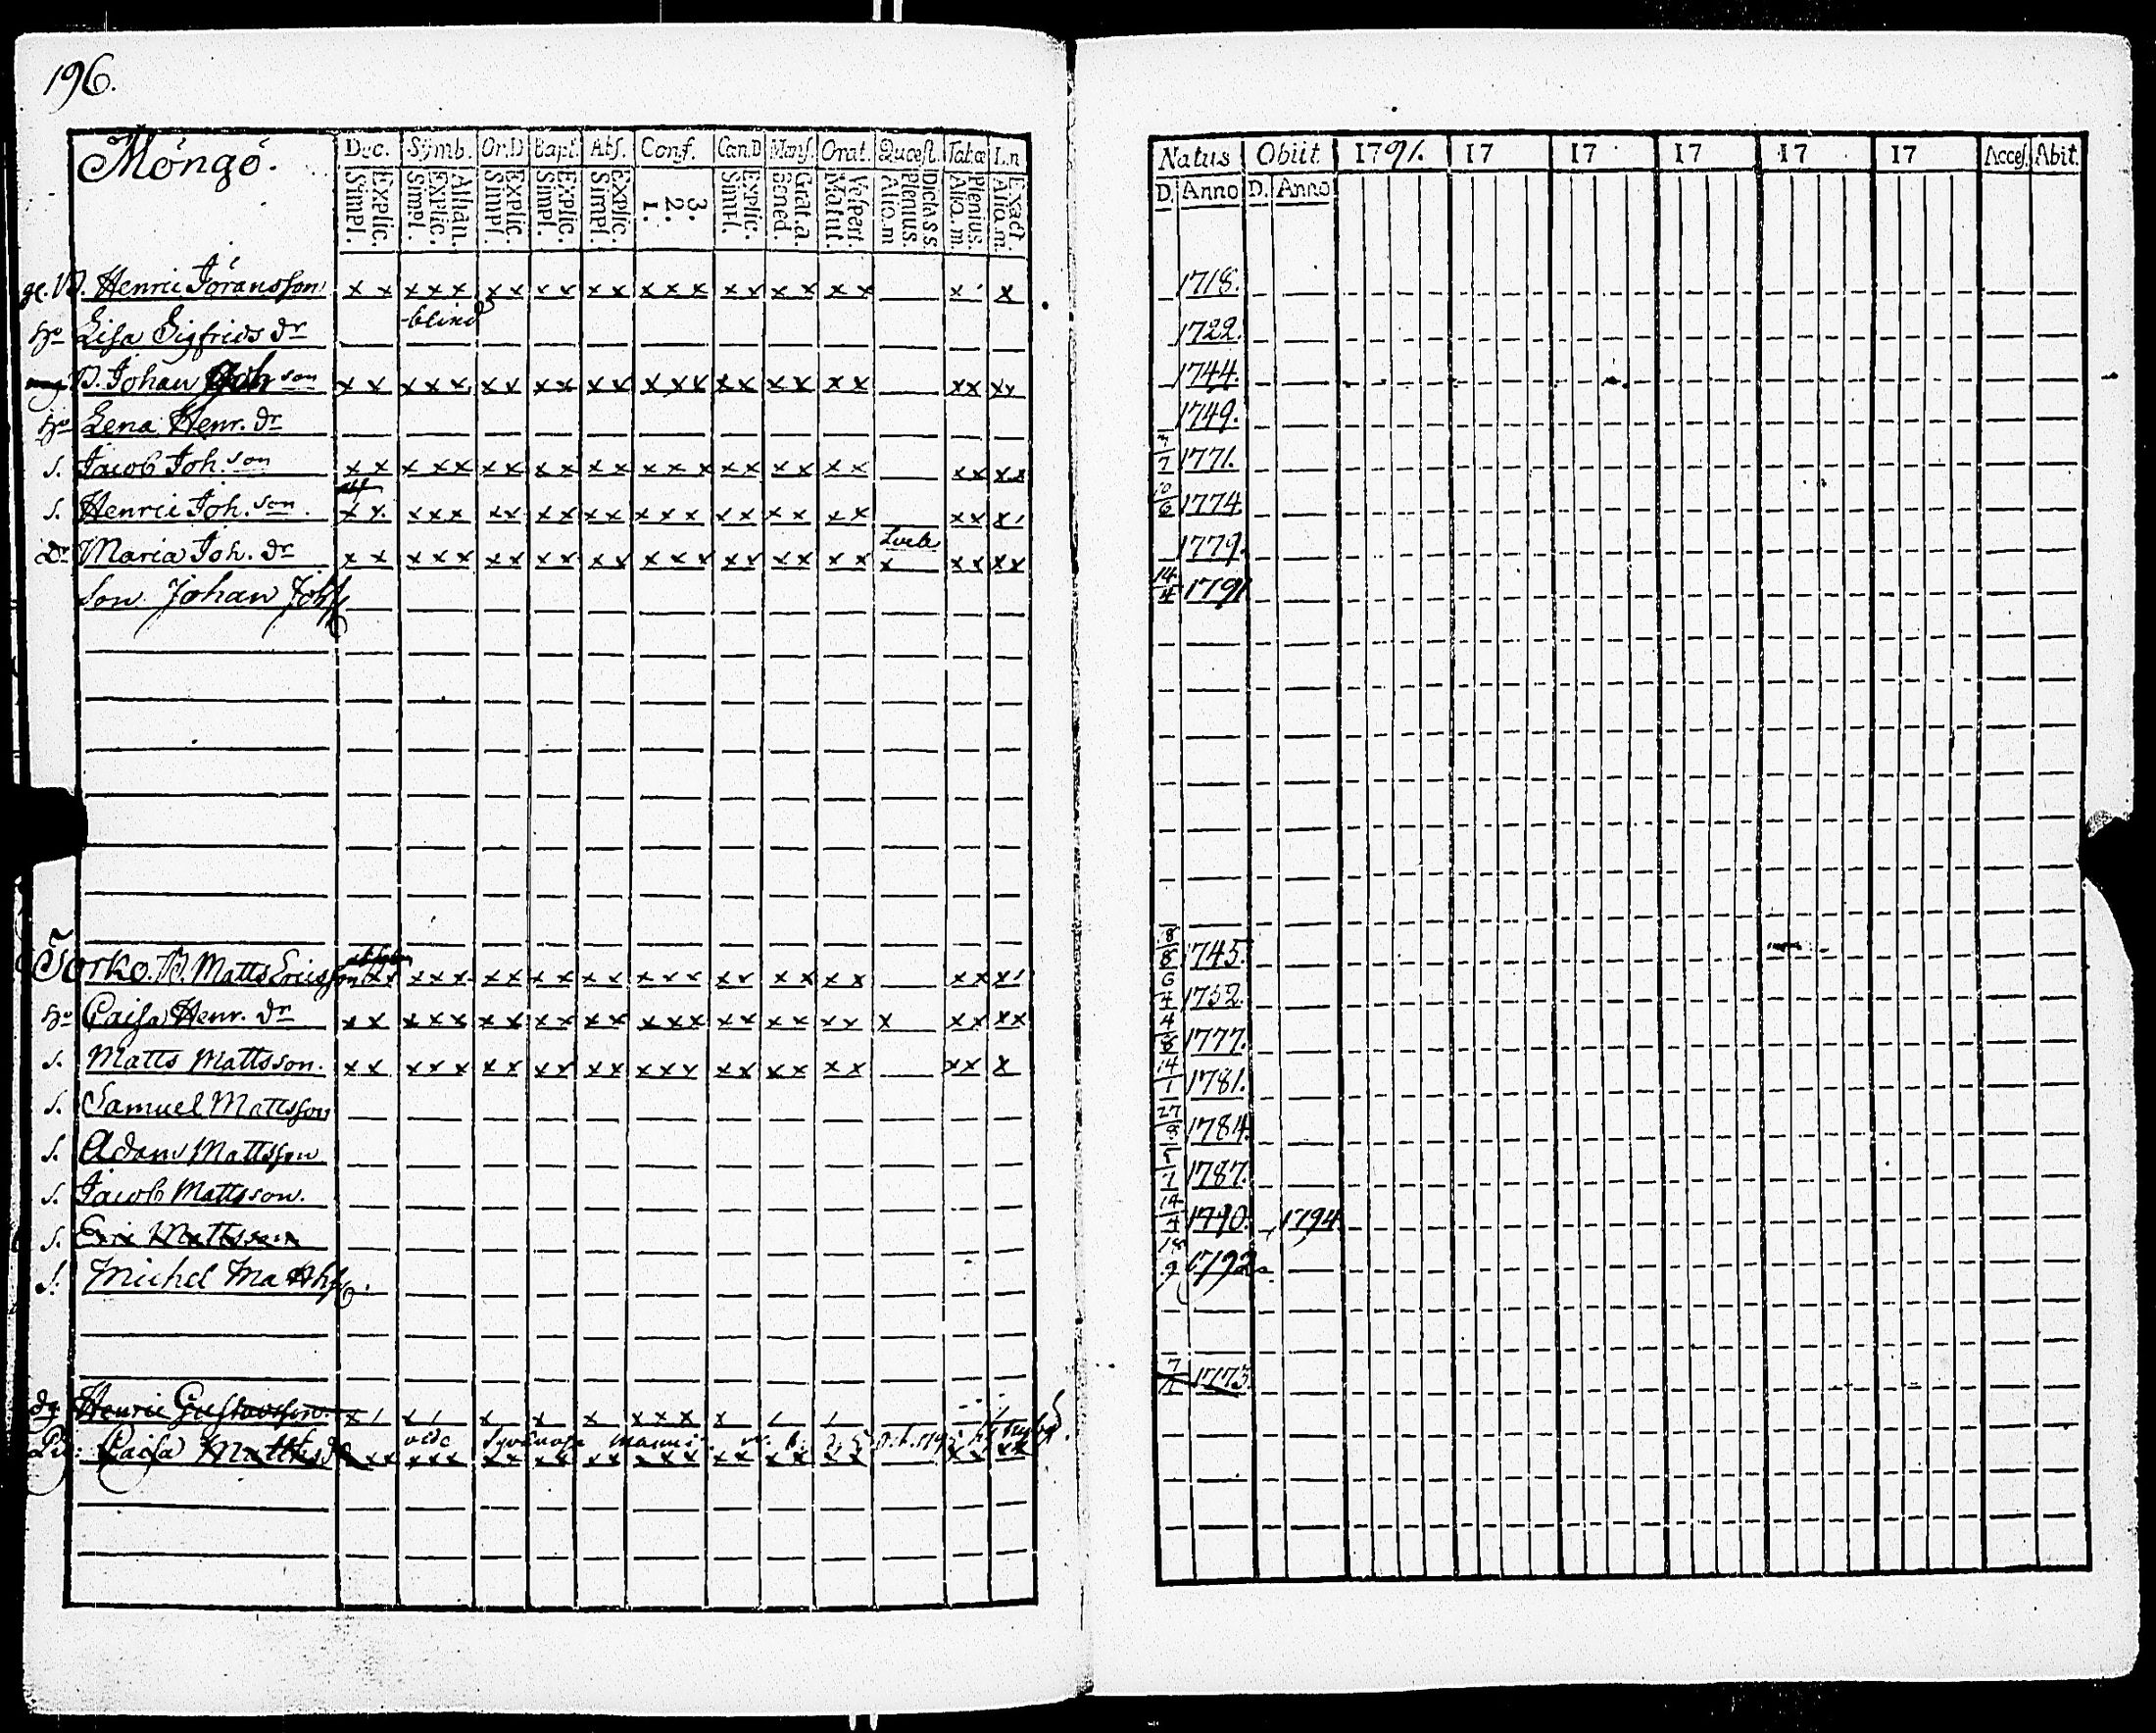 196.
Möngö.
Dec. Symb. Or.D Bapt. Abs. Conf. Can.D Mens. Orat. Quæst. Tab.œ I.n
Simpl. Explic. Simpl. Explic. Athan. Simpl. Explic. Simpl. Explic. Simpl. Explic. 1. 2. 3. Simpl. Explic. Bened. Grat.a. Matut. Vespert. Alio.m Plenius. Dicla s s. Alia.m. Plenius. Alia.m. Exact.
Natus Obiit 1791. 17 17 17 17 17 Acces. Abit.
D. Anno D. Anno
gl. B. Henric Jöransson x x x x x x x x x x x x x x x x x x x x x x 1718.
blind
Hu Lisa Sigfrids dr 1722.
B. Johan Joh son x x x x x x x x x x x x x x x x x x x x x x x x 1744.
Hu Lena Henr. dr 1749.
s. Jacob Joh. son x x x x x x x x x x x x x x x x x x x x x x x x 7 1771.
s. Henric Joh. son. x x x x x x x x x x x x x x x x x x x x x x x 10/6 1774
Dr Maria Joh. dr x x x x x x x x x x x x x x x x x x x x x x x x x 1779.
son Johan Johss 14/4 1791
Torko. B. Matts Ericsson x x x x x x x x x x x x x x x x x x x x x x x 8/8 1745
Hu Caisa Henr. dr x x x x x x x x x x x x x x x x x x x x x x x x x 6/4 1752
s. Matts Mattsson. x x x x x x x x x x x x x x x x x x x x x x x 4/8 1777.
s. Samuel Mattsson 14/1 1781.
s. Adam Mattsson 27/8 1784
s. Jacob Mattsson. 1787.
s. Eric Mattsson 14/4 1790. 1794
s. Michel Mathss. 9 1792
dg Henric Gustavsson. x x x x x x x x x 7 1773.
Caisa Matts dr x x x x x x x x x x x x x x x x x x x x x x x